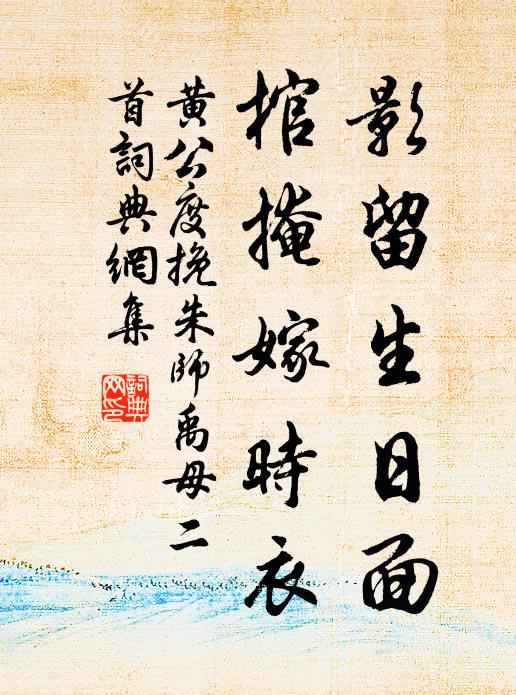 影留生日面
棺掩嫁時衣
黃公度挽朱師禹母二
首詞典網集
詞典
网印